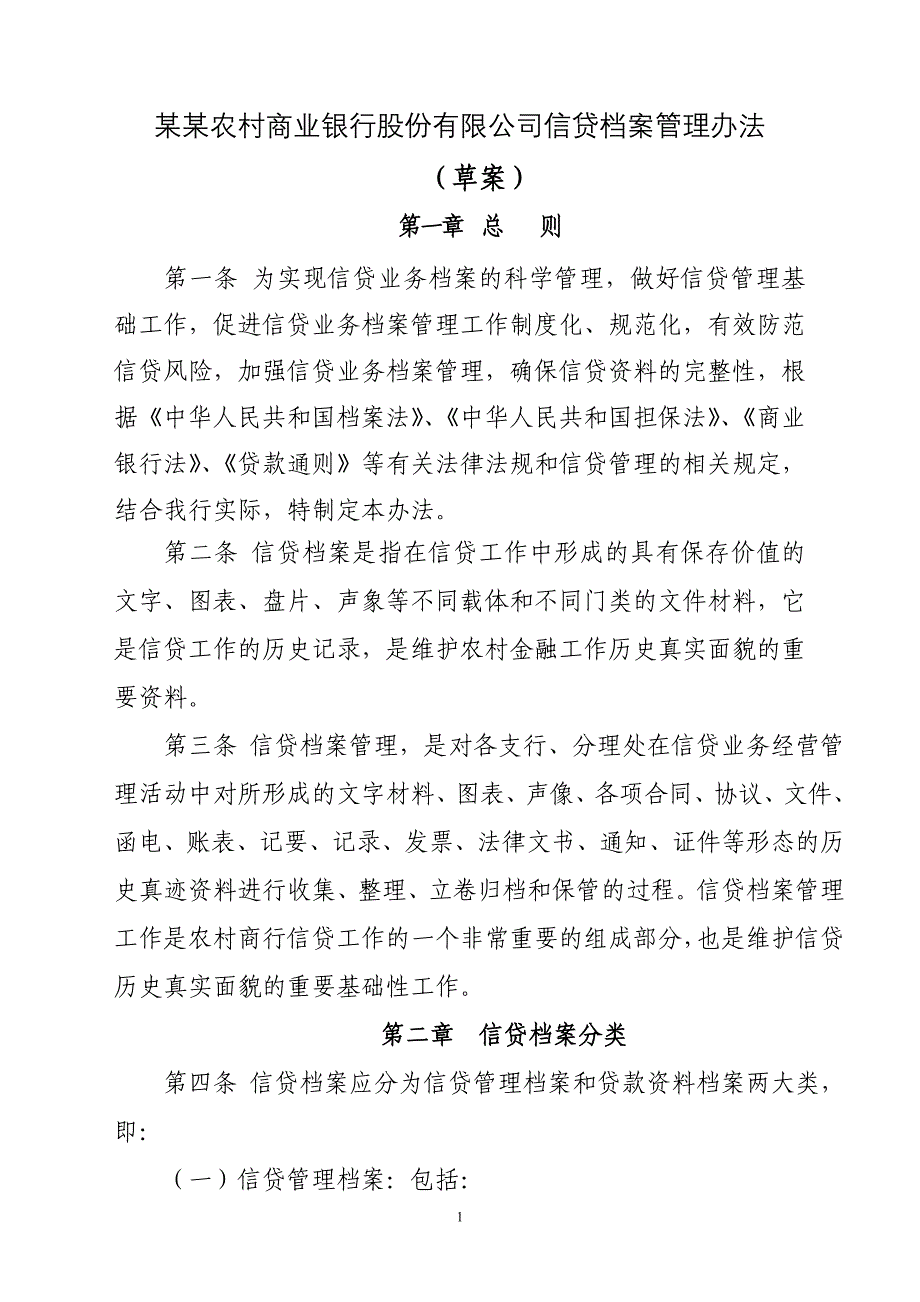 某某农村商业银行股份有限公司信贷档案管理办法
（草案）
第一章 总 则
第一条 为实现信贷业务档案的科学管理，做好信贷管理基
础工作，促进信贷业务档案管理工作制度化、规范化，有效防范
信贷风险，加强信贷业务档案管理，确保信贷资料的完整性，根
据《中华人民共和国档案法》、《中华人民共和国担保法》、《商业
银行法》、《贷款通则》等有关法律法规和信贷管理的相关规定，
结合我行实际，特制定本办法。
第二条 信贷档案是指在信贷工作中形成的具有保存价值的
文字、图表、盘片、声象等不同载体和不同门类的文件材料，它
是信贷工作的历史记录，是维护农村金融工作历史真实面貌的重
要资料。
第三条 信贷档案管理，是对各支行、分理处在信贷业务经营管
理活动中对所形成的文字材料、图表、声像、各项合同、协议、文件、
函电、账表、记要、记录、发票、法律文书、通知、证件等形态的历
史真迹资料进行收集、整理、立卷归档和保管的过程。信贷档案管理
工作是农村商行信贷工作的一个非常重要的组成部分，也是维护信贷
历史真实面貌的重要基础性工作。
第二章 信贷档案分类
第四条 信贷档案应分为信贷管理档案和贷款资料档案两大类，
即：
（一）信贷管理档案：包括：
1